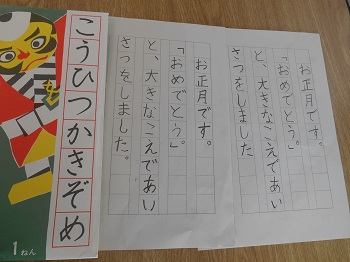 こうひつかきぞめ
1ねん
お正月です。
「おめでとう。」
と、大きなこえであい
さつをしました
お正月です。
「おめでとう。」
と、大きなこえであい
さつをしました。